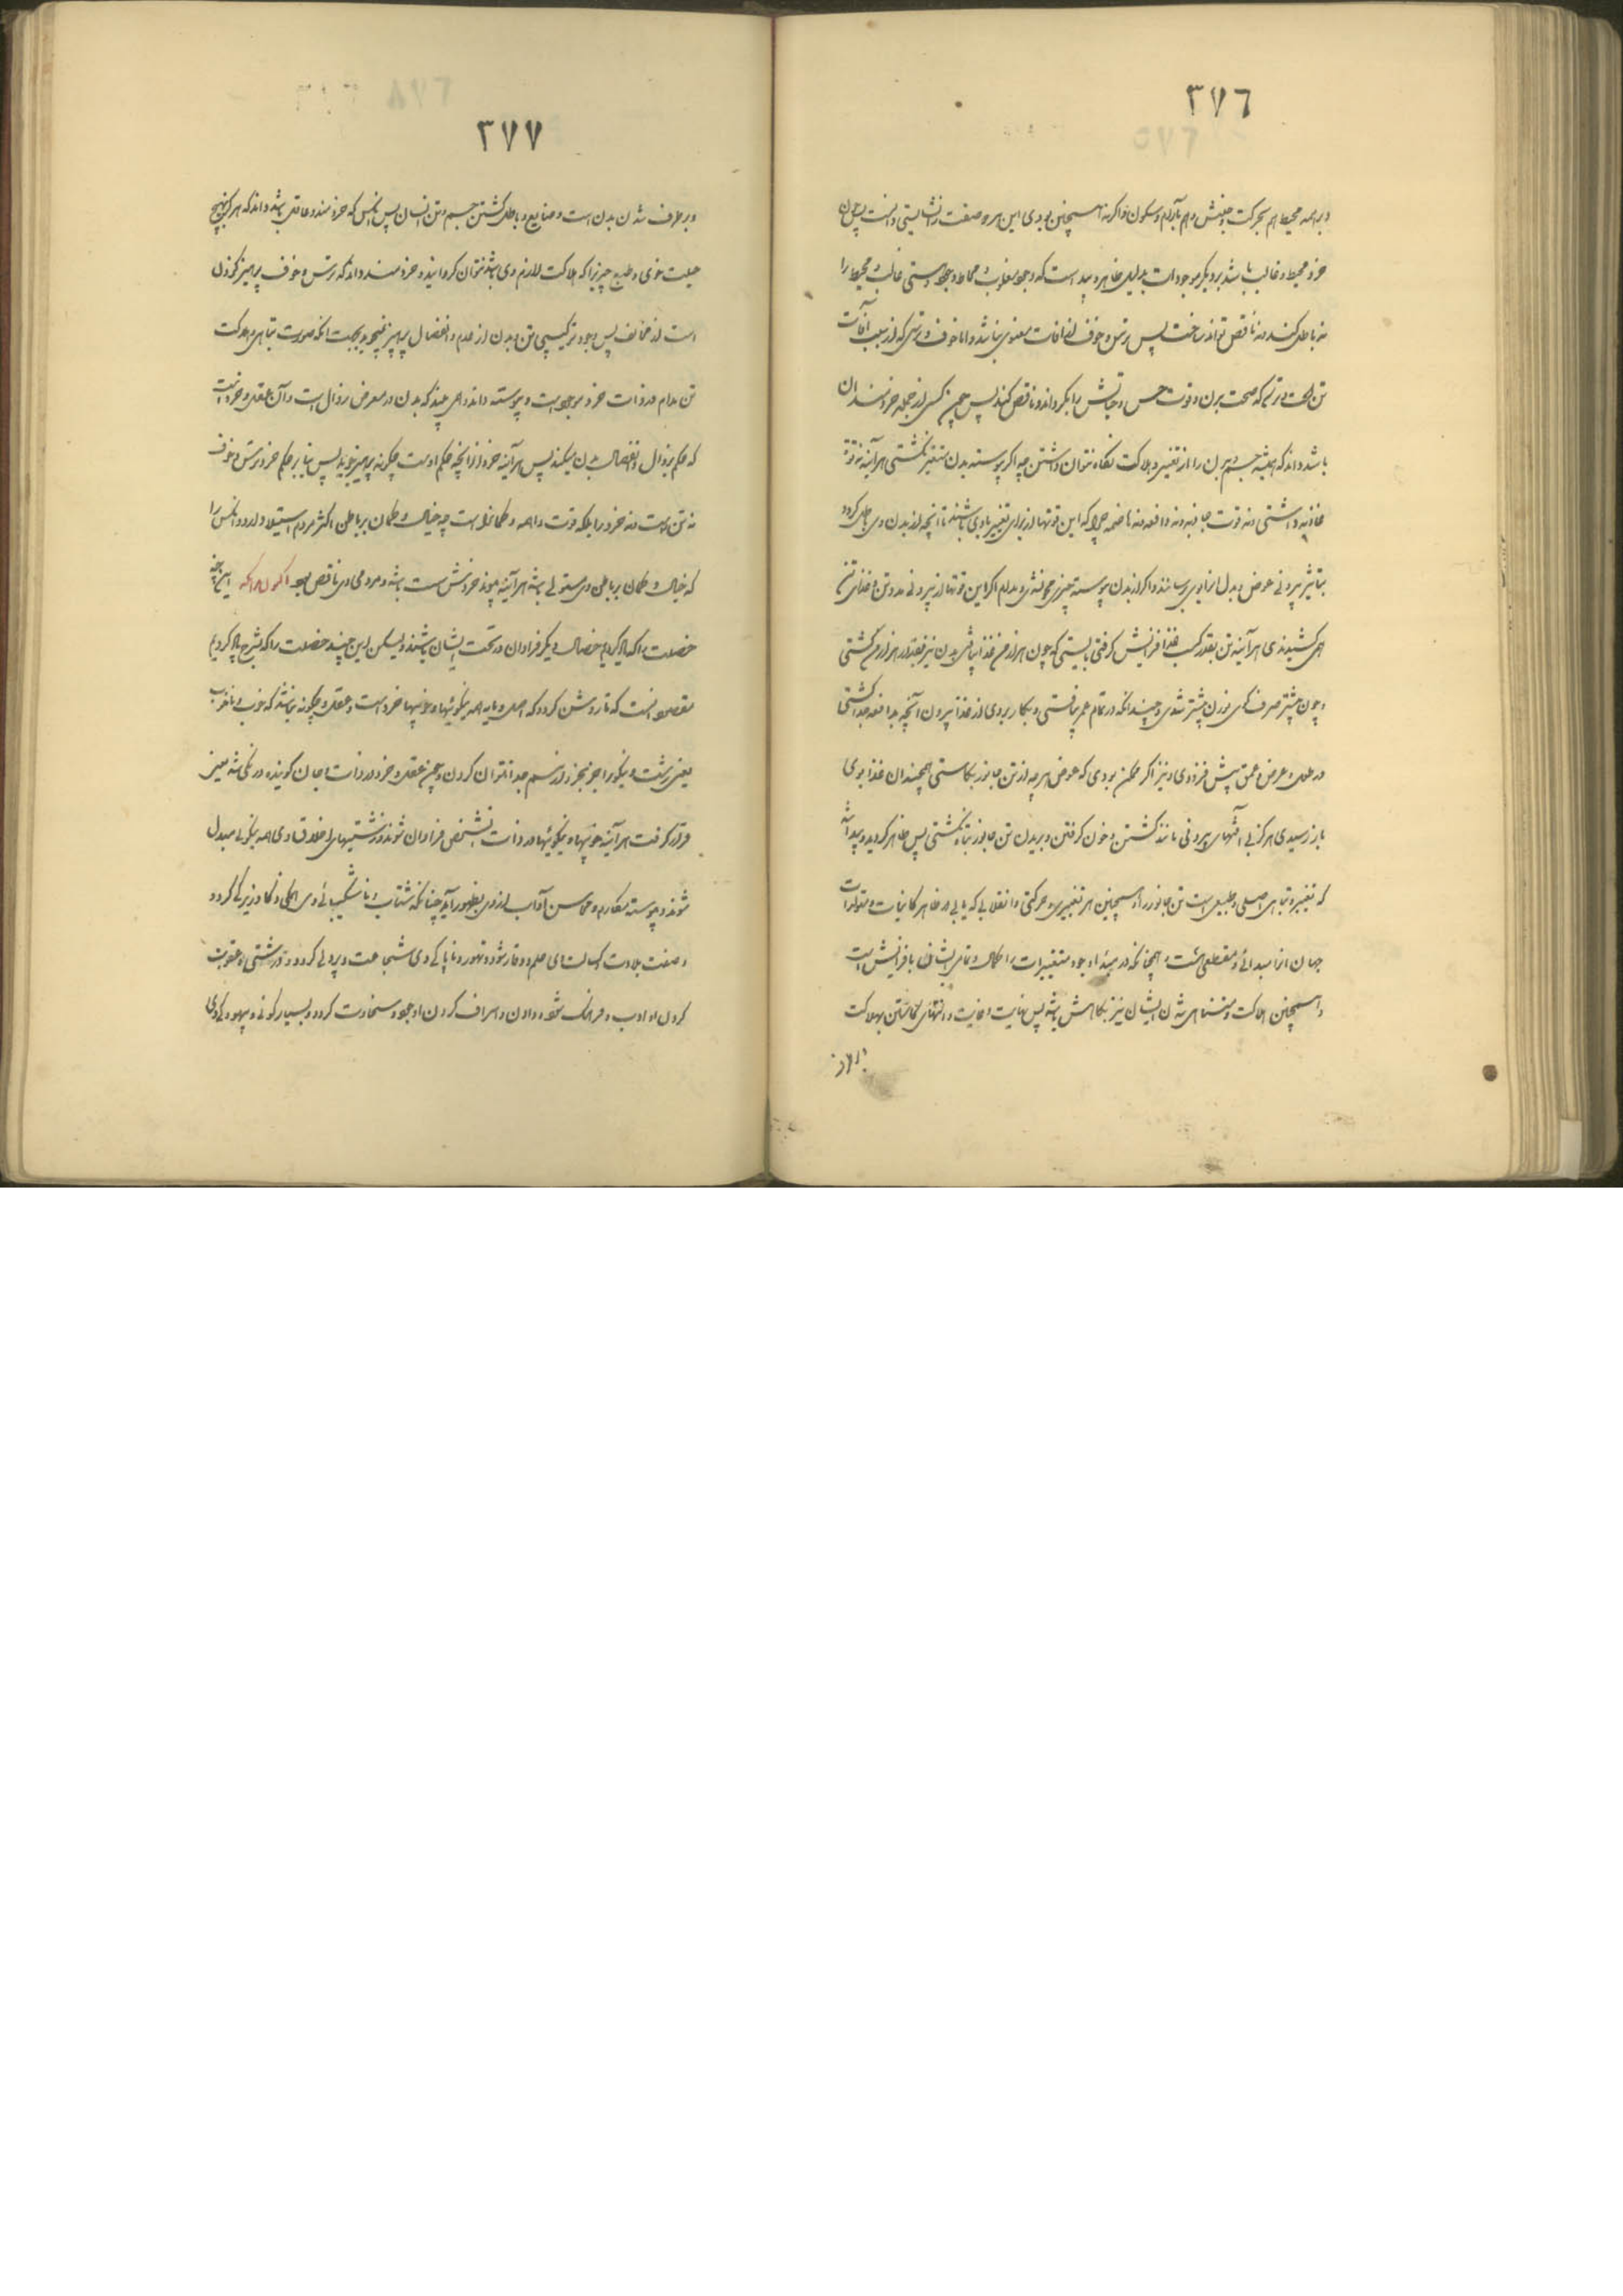 ٣٧٦
و بر همه محیط هم بحرکت و جنبش و هم بآرام و سکون و اگر نه همچنین بودی این هر دو صفت را نشایستی دانست پس چون
خرد محیط و غالب باشد بر دیگر موجودات بدلیل ظاهر و پیداست که وجود مغلوب و محاط وجود هستی غالب و محیط را
نه باطل کند و نه ناقص تواند ساخت پس ترس و خوف از آفات معنوی نباشد و اما خوف و ترسی که از سبب آفات
تن است و ترسی که صحت بدن و قوت حس و حیاتش را بگرداند و ناقص کند پس چون کسی از جمله خردمندان
باشد داند که همیشه جسم و بدن را از تغییر و هلاکت نگاه نتوان داشتن چه اگر پیوسته بدن متغیر نگشتی هر آینه نه قوة
غاذیه داشتی و نه قوت جاذبه و نه دافعه و نه هاضمه چرا که این قوتها از برای تغییر با وی باشند تا آنچه از بدن وی باطل گردد
بتأثیر بیرونی عوض و بدل از آن بوی رسانند و اگر از بدن پیوسته چیزی محو نشدی و مدام اگر این قوتها از بیرونی مدد تن و غذای تن
همی کشیدندی هر آینه تن بقدر کسب غذا افزایش گرفتی بایستی که چون هزار من غذا بیافتی بدن نیز بقدر هزار من گشتی
و چون بیشتر صرف کردی وزن بیشتر شدی و چندانکه در تمام عمر بیافتی و بکار بردی از غذا بیرون آنچه بدافعه جدا گشتی
در طول و عرض و عمق بیش فزودی و نیز اگر ممکن بودی که عوض هر چه از تن جانور بکاستی همچندان غذا بوی
باز رسیدی هرگز بی آفتهای بیرونی مانند کشتن و خون گرفتن و بریدن تن جانور تباه نگشتی پس ظاهر گردید و پیدا شد
که تغییر و تباهی اصلی و طبیعی است تن جانور را و همچنین هر تغییری و حرکتی و انقلابی که یابی در ظاهر کائنات و متولدات
جهان آنرا مبدائی و مقطعی هست و همچنانکه در مبدا وجود متغیرات را کمال و تمامی ایشان بافزایش است
و همچنین هلاکت و متناهی شدن ایشان نیز بکاهش باشد پس نهایت و غایت و انتهای کاستن بهلاکت
٣٧٧
و برطرف شدن بدن است و ضایع و باطل گشتن جسم و تن انسان پس آنکس که خردمند و عاقل باشد داند که هرگز بهیچ
حیلت خوی و طبع چیزی را که هلاکت لازم وی باشد نتوان گردانید و خردمند داند که ترس و خوف پرهیز کردن
است از مخالف پس وجود ترکیبی تن و بدن از عدم و انفصال پرهیز نجوید بجهت آنکه صورت تباهی و هلاکت
تن مدام در ذات خرد موجود است و پیوسته داند و همی بیند که بدن در معرض زوال است و آن عقل و خرد است
که حکم بزوال و انفصال بدن میکند پس هر آینه خرد از آنچه حکم اوست چگونه پرهیز جوید پس بنابر حکم خرد ترس و خوف
نه تن راست و نه خرد را بلکه قوت واهمه و گمانرا است چه خیال و گمان بر باطن اکثر مردم استیلا دارد و آنکس را
که خیال و گمان بر باطن وی مستولی باشد هر آینه پیوند خردش سست باشد و مردمی وی ناقص بود اکنون بدانکه این پنج
خصلت را که یاد کردیم خصال دیگر فراوان در تحت ایشان باشند و لیکن این چند خصلت را که بشرح یاد کردیم
مقصود آنست که تا روشن گردد که اصل و مایه همه نیکوئیها و خوبیها خرد است و عقل و چگونه نباشد که خوب و ناخوب
یعنی زشت و نیکو را جز بخرد از هم جدا نتوان کردن و چون عقل و خرد در ذات و جان گوینده در یکی شد و نیز
قرار گرفت هر آینه خوبیها و نیکوئیها در ذات آنشخص فراوان شوند و زشتیهای اخلاق وی همه نیکوئی مبدل
شوند و پیوسته مکارم و محاسن آداب از وی بظهور آید چنانکه شتاب و ناشکیبائی وی اهلی و ذکا و زیرکی گردد
و صفت بلادت و کسالت وی حلم و وقار شود و تهور و ناپاکی وی شجاعت و پردلی گردد و درشتی و عقوبت
کردن او ادب و فرهنگ شود و دادن و اسراف کردن او جود و سخاوت گردد و بسیار گوئی و بیهوده گی